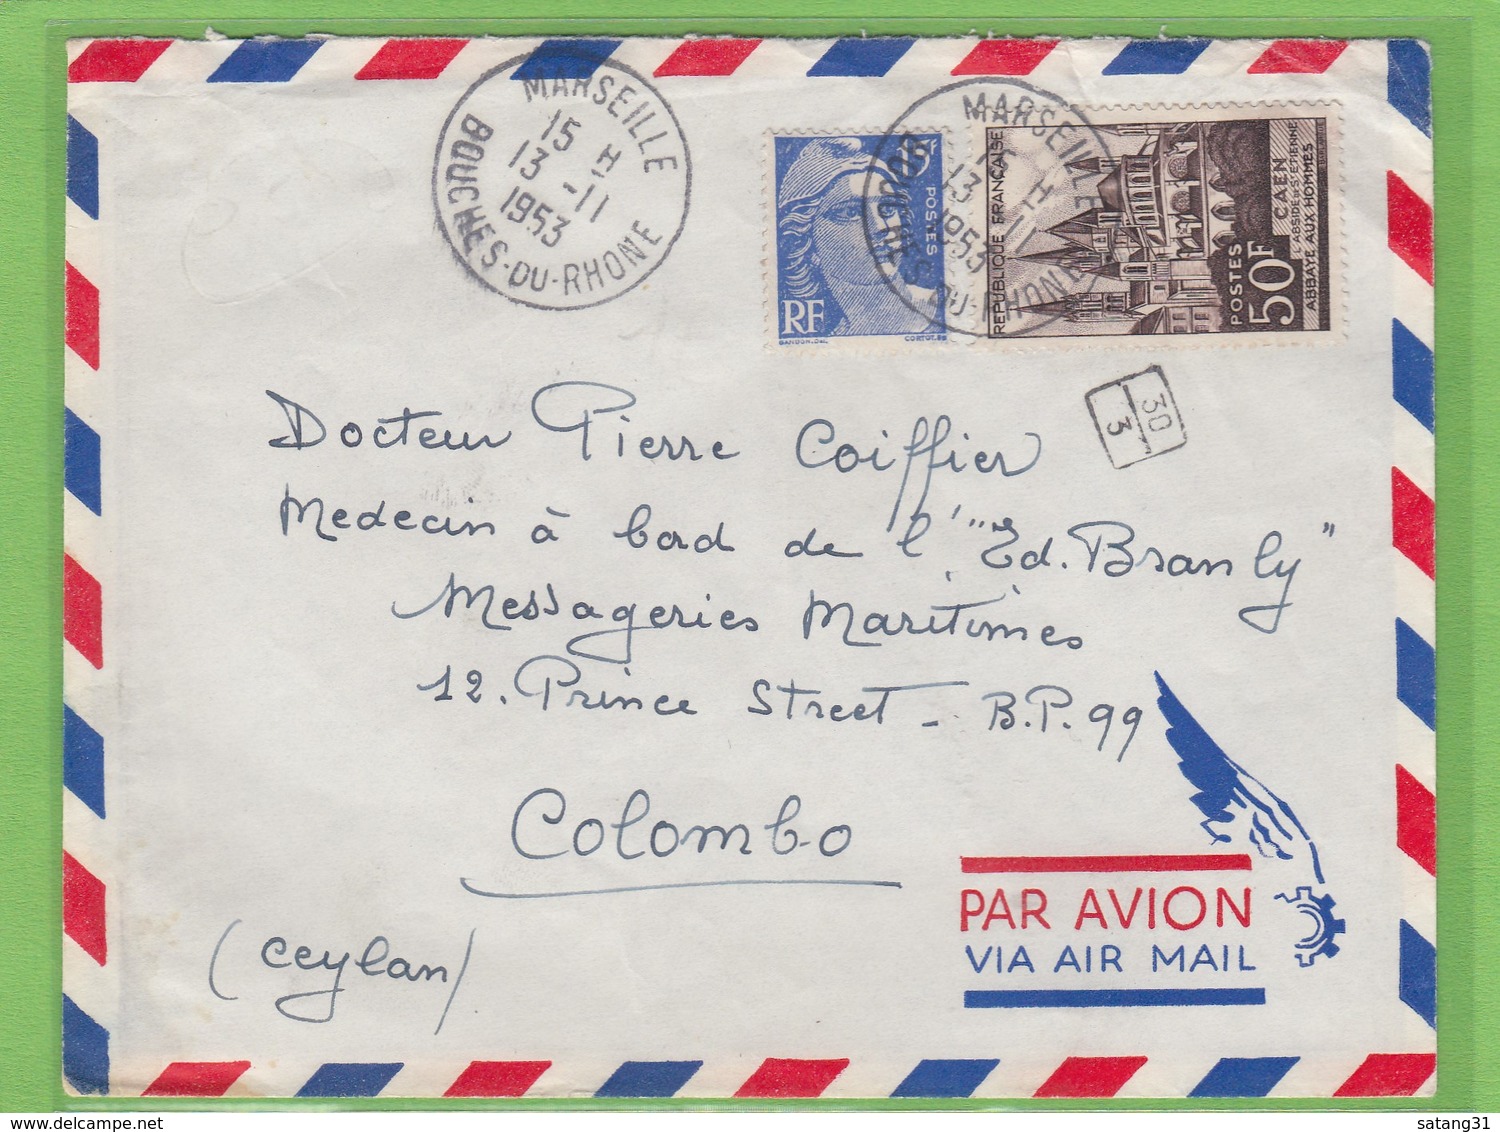 MARSEILLE
15 H
13 -11
1953
BOUCHES-DU-RHONE
POSTES
RF
GANDON.DEL.
MARSEILLE
15 H
13 11
1953
BOUCHES-DU-RHONE
REPUBLIQUE FRANÇAISE
POSTES
50F
CAEN
ABSIDE DE ST ETIENNE
ABBAYE AUX HOMMES
30
3
Docteur Pierre Coiffier
Medecin à bord de l'"Ed. Branly"
Messageries Maritimes
12. Prince Street - B.P. 99
Colombo
(Ceylan)
PAR AVION
VIA AIR MAIL
delcampe.net
satang31